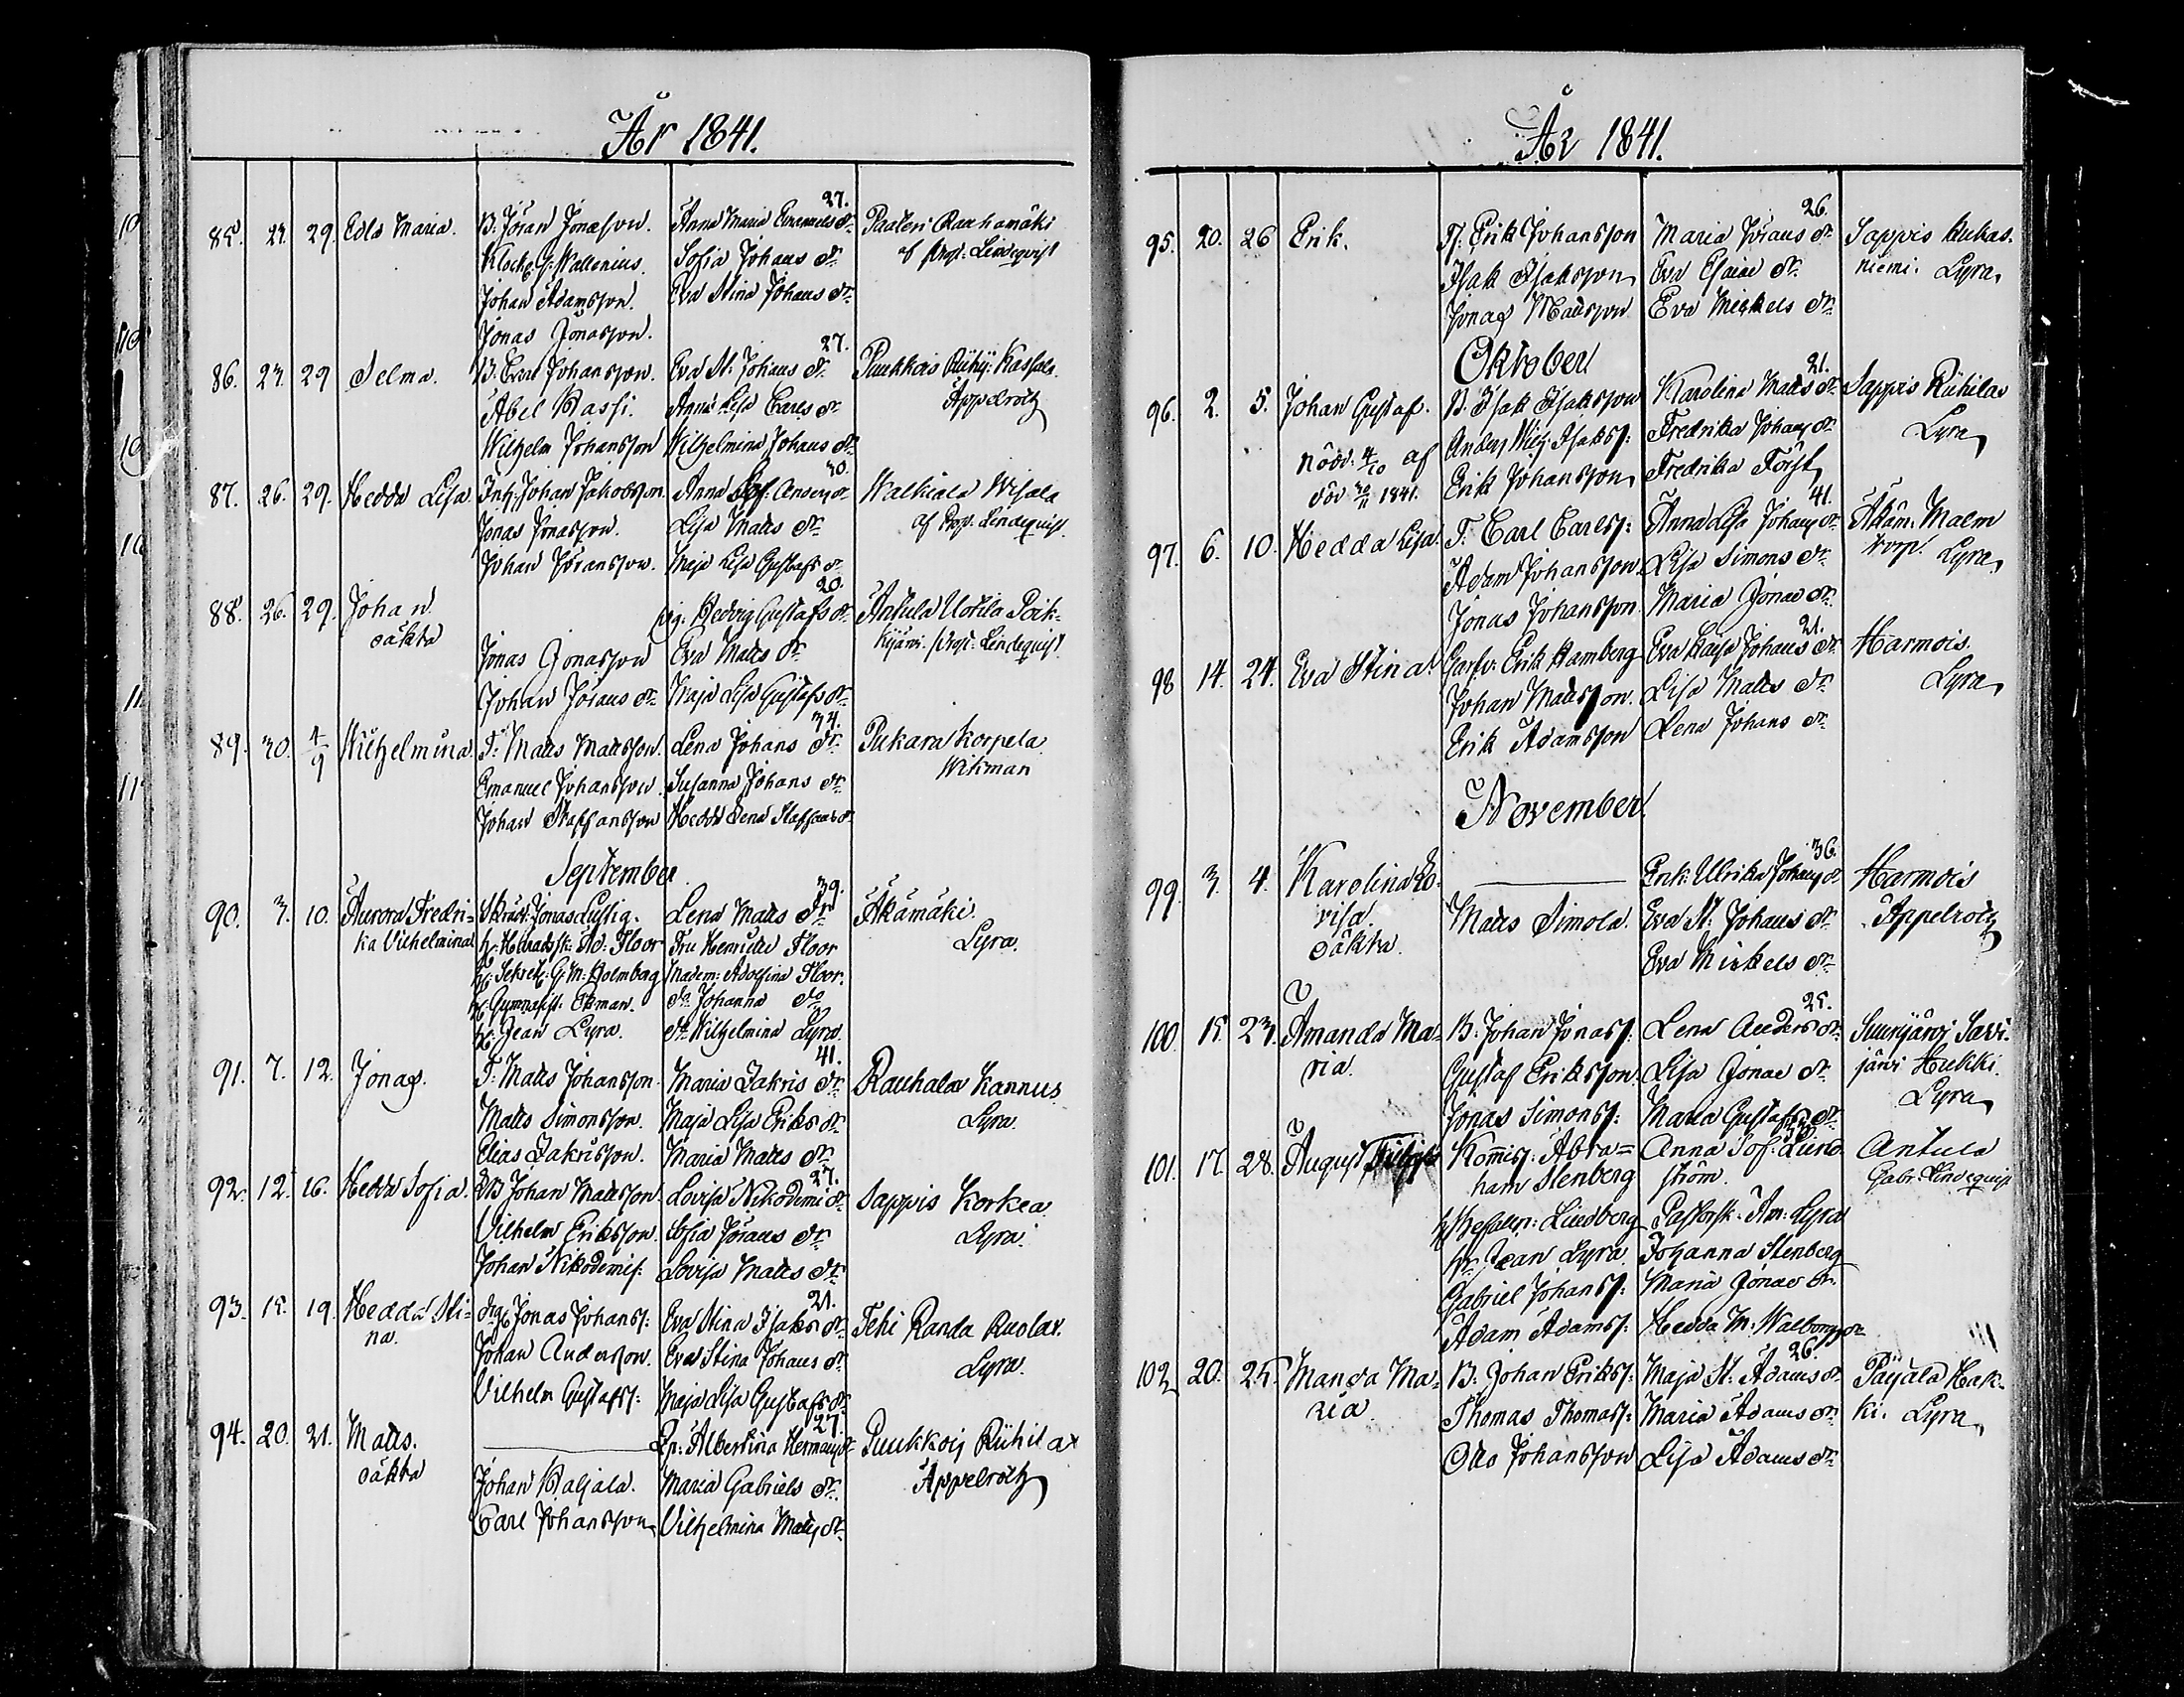 År 1841.
27.
85. 23. 29. Edla Maria. B. Jöran Jonasson. Anna Maria Emanuels dr. Paaleri Rauhamäki
Klock. G. Wallenius. Sofia Johans dr. af Prost. Lindequist
Johan Adamsson. Eva Stina Johans dr.
Jonas Jonasson.
27.
86. 23. 29 Selma. B. Johansson. Eva St. Johans dr. Puukkois
Abel Anna Lisa Carls dr. Appelroth
Wilhelm Johansson Wilhelmina Johans dr.
30.
87. 26. 29. Hedda Lisa. Inh. Johan Jakobsson. Anna Sof. Anders dr. Walkiala Wisala
Jonas Jonasson. Lisa Matts dr. af Prop. Lindequist.
Johan Jöransson. Maja Lisa Gustafs dr.
20.
88. 26. 29. Johan Pig. Hedvig Gustafs dr. Anttila Uotila Poik-
oäkta Jonas Jonasson Eva Matts dr. kijärvi. Prost. Lindequist.
Johan Jörans dr. Maja Lisa Gustafs dr.
34.
89. 30. 4/9 Wilhelmina. T. Matts Mattsson. Lena Johans dr. Pukara Korpela
Emanuel Johansson. Susanna Johans dr. Wikman
Johan Staffansson Hedda Lena Staffans dr.
September
39.
90. 3. 10. Aurora Fredri- Skräd. Jonas Lustig. Lena Matts dr. Äkämäki.
ka Vilhelmina H. Häradssk. Ad. Floor Fru Floor Lyra.
H. Sekret. G. M. Holmberg Madem. Adolfina Floor.
H. Gymnasist. Ekman. do Johanna do
H. Jean Lyra. do Wilhelmina Lyra.
41.
91. 7. 12. Jonas. T. Matts Johansson. Maria Zakris dr. Rauhala Kannus
Matts Simonsson. Maja Lisa Eriks dr. Lyra.
Elias Zakrisson. Maria Matts dr.
27.
92. 12. 16. Hedda Sofia. Johan Mattsson. Lovisa Nikodemi dr. Sappis Korkea
Vilhelm Eriksson. Sofia Jörans dr. Lyra.
Johan Nikodemis. Lovisa Matts dr.
21.
93. 15. 19. Hedda Sti- Jonas Johanss: Eva Stina Isaks dr. Tehi Randa Ruolax.
na. Johan Andersson. Eva Stina Johans dr. Lyra.
Vilhelm Gustafss: Maja Lisa Gustafs dr.
27.
94. 20. 21. Matts. Albertina Hermans dr. Puukkois Riihilax
oäkta Johan Maria Gabriels dr. Appelroth
Carl Johansson Vilhelmina Matts dr.
År 1841.
26.
95. 20. 26 Erik. Erik Johansson Maria Jörans dr. Sappis Kukas-
Isak Isaksson Eva Esaiae dr. niemi. Lyra
Jonas Mattsson Eva Mickels dr.
Oktober
21.
96. 2. 5. Johan Gustaf. B. Isak Isaksson Karolina Matts dr. Sappis Riihilax
nödd. 4/10 af Anders Isakss: Fredrika Johans dr. Lyra
1841. Erik Johansson Fredrika Först
41.
97. 6. 10. Hedda Lisa. T. Carl Carlss: Anna Lisa Johans dr. Äkäm. Malm
Adam Johansson. Lisa Simons dr. torp. Lyra
Jonas Johansson. Maria Jonae dr.
21.
98 14. 24. Eva Stina. Garfv. Erik Hamberg Eva Kajsa Johans dr. Harmois.
Johan Mattsson. Lisa Matts dr. Lyra
Erik Adamsson Lena Johans dr.
November
36.
99. 3. 4. Karolina Lo- Enk. Ulrika Johans dr. Harmois
visa. Matts Simola. Eva St. Johans dr. Appelroth
oäkta. Eva Mickels dr.
25.
100. 15. 23. Amanda Ma- B. Johan Jonass: Lena Anders dr. Suurijärvi Savi-
ria. Gustaf Eriksson. Lisa Jonae dr. järvi Hukki.
Jonas Simonss: Maria Gustafs dr. Lyra
101. 17. 28. August Kommiss. Abra= Anna Sof. Lind Antula
ham Stenberg ström. Gabr. Lindequist
Lindberg Pastorsk. Am. Lyra
Hr. Jean Lyra. Johanna Stenberg
Gabriel Johanss: Maria Jonae dr.
Adam Adamss: Hedda M. Walborgs dr.
26.
102 20. 25. Manda Ma- B. Johan Erikss: Maja St. Adams dr. Päijälä Hak-
ria. Thomas Thomass: Maria Adams dr. ki. Lyra
Otto Johansson Lisa Adams dr.